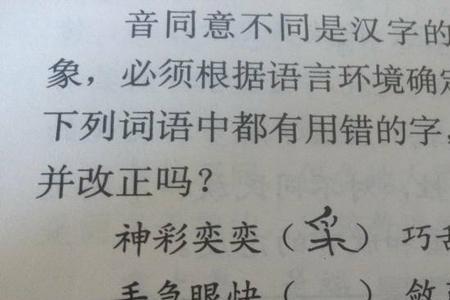 音同意不同是汉字的
象，必须根据语言环境确定
下列词语中都有用错的字，
并改正吗？
神彩奕奕（采）巧舌
手急眼快（ ）敛